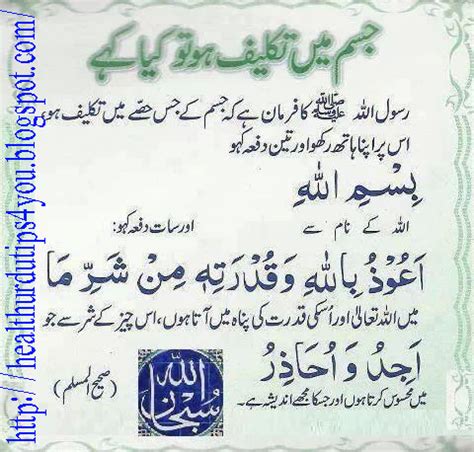 جسم میں تکلیف ہو تو کیا کہے
رسول اللہ ﷺ کا فرمان ہے کہ جسم کے جس حصے میں تکلیف ہو،
اس پر اپنا ہاتھ رکھو اور تین دفعہ کہو
بِسْمِ اللّٰہِ
اللہ کے نام سے اور سات دفعہ کہو:
اَعُوْذُ بِاللّٰہِ وَقُدْرَتِہٖ مِنْ شَرِّ مَا
میں اللہ تعالیٰ اور اُسکی قدرت کی پناہ میں آتا ہوں، اس چیز کے شر سے جو
اَجِدُ وَ اُحَاذِرُ
میں محسوس کرتا ہوں اور جسکا مجھے اندیشہ ہے۔
(صحیح المسلم)
سُبْحَانَ اللّٰہ
http://healthurdutips4you.blogspot.com/